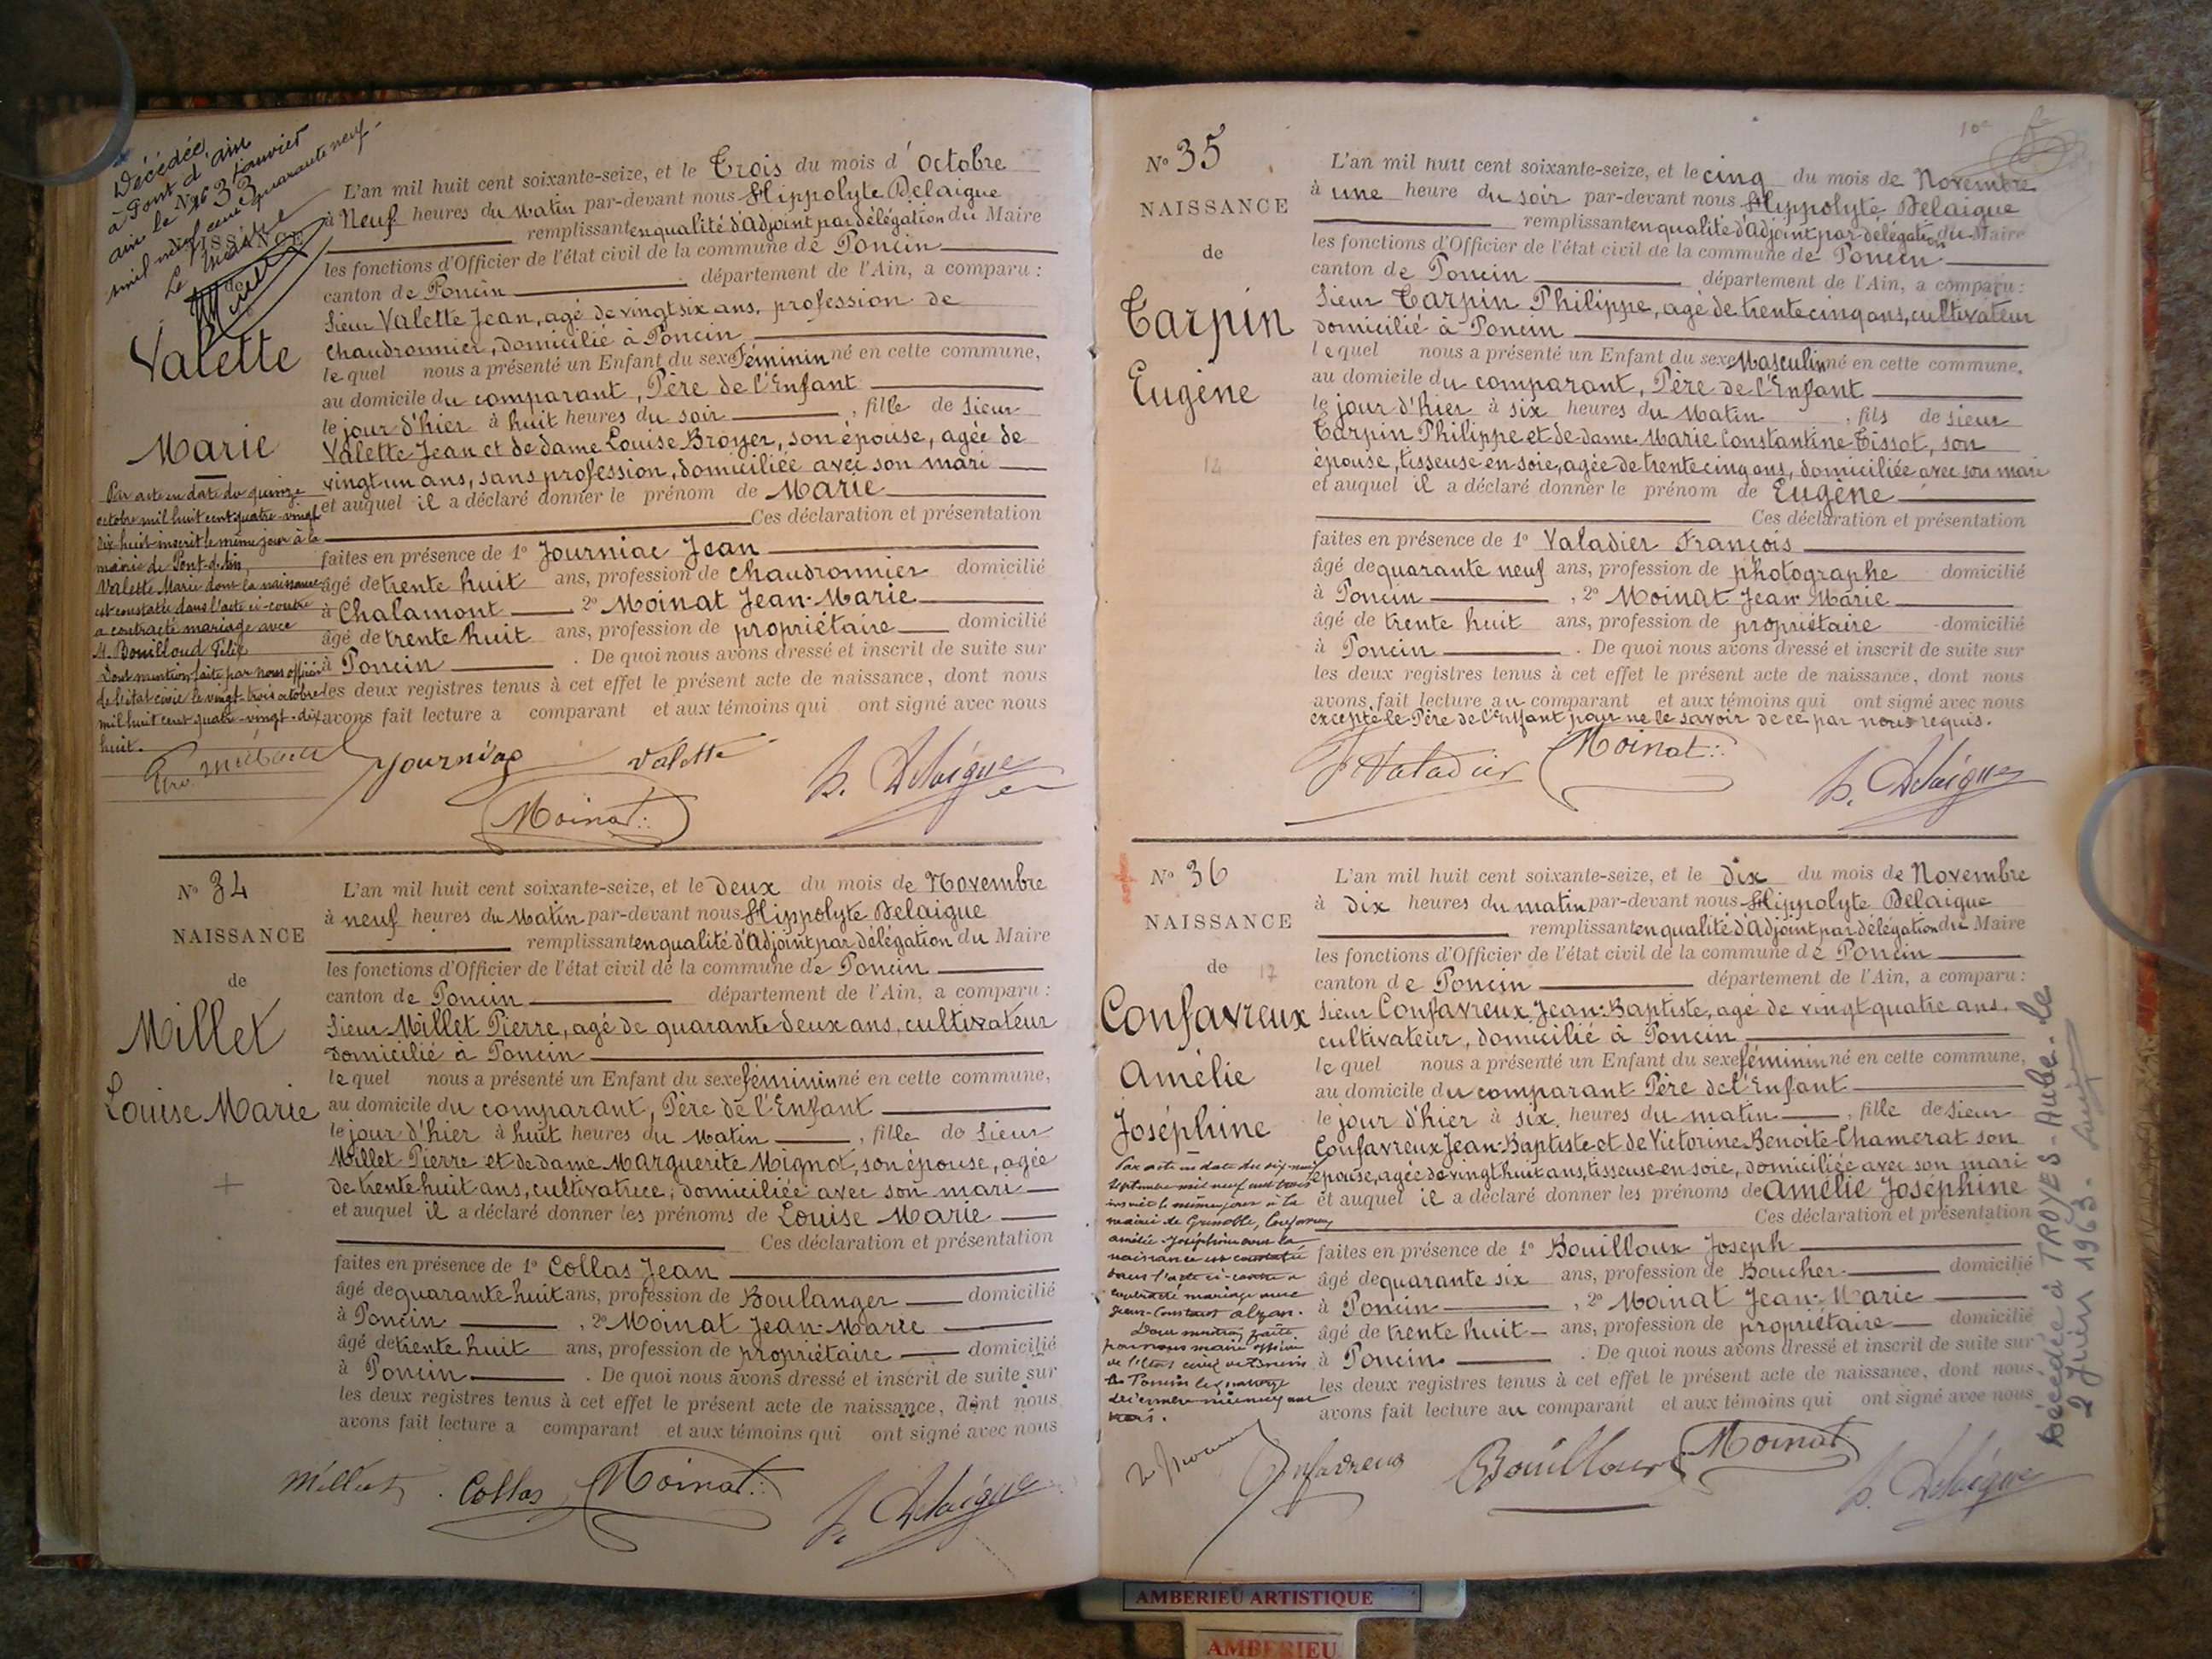 Décédée
à Pont d'ain
ain le 26 Janvier
mil neuf cent quarante neuf.
Le
N° 33
NAISSANCE
de
Valette
Marie
Par acte en date du quinze
octobre mil huit cent quatre-vingt
dix huit inscrit le même jour à la
mairie de Pont-d'Ain,
Valette Marie dont la naissance
est constatée dans l'acte ci-contre
a contracté mariage avec
M. Bouilloud Félix
Dont mention faite par nous officier
de l'état civil le vingt-trois octobre
mil huit cent quatre-vingt-dix
huit.
L'an mil huit cent soixante-seize, et le Trois du mois d'octobre
à Neuf heures du Matin par-devant nous Hippolyte Delaigue
remplissant en qualité d'Adjoint par délégation du Maire
les fonctions d'Officier de l'état civil de la commune de Poncin
canton de Poncin département de l'Ain, a comparu :
Sieur Valette Jean, agé de vingt six ans, profession de
chaudronnier, domicilié à Poncin
lequel nous a présenté un Enfant du sexe Féminin né en cette commune,
au domicile du comparant, Père de l'Enfant
le jour d'hier à huit heures du soir, fille de Sieur
Valette Jean et de dame Louise Broyer, son épouse, agée de
vingt un ans, sans profession, domiciliée avec son mari
et auquel il a déclaré donner le prénom de Marie
Ces déclaration et présentation
faites en présence de 1° Journiac Jean
âgé de trente huit ans, profession de chaudronnier domicilié
à Chalamont 2° Moinat Jean-Marie
âgé de trente huit ans, profession de propriétaire domicilié
à Poncin . De quoi nous avons dressé et inscrit de suite sur
les deux registres tenus à cet effet le présent acte de naissance, dont nous
avons fait lecture a comparant et aux témoins qui ont signé avec nous
Journiac Valette
Moinat H. Delaigue
N° 34
NAISSANCE
de
Millet
Louise Marie
L'an mil huit cent soixante-seize, et le deux du mois de Novembre
à neuf heures du Matin par-devant nous Hippolyte Delaigue
remplissant en qualité d'Adjoint par délégation du Maire
les fonctions d'Officier de l'état civil de la commune de Poncin
canton de Poncin département de l'Ain, a comparu :
Sieur Millet Pierre, agé de quarante deux ans, cultivateur
domicilié à Poncin
lequel nous a présenté un Enfant du sexe féminin né en cette commune,
au domicile du comparant, Père de l'Enfant
le jour d'hier à huit heures du Matin, fille de Sieur
Millet Pierre et de dame Marguerite Mignot, son épouse, agée
de trente huit ans, cultivatrice, domiciliée avec son mari
et auquel il a déclaré donner les prénoms de Louise Marie
Ces déclaration et présentation
faites en présence de 1° Collas Jean
âgé de quarante huit ans, profession de Boulanger domicilié
à Poncin, 2° Moinat Jean-Marie
âgé de trente huit ans, profession de propriétaire domicilié
à Poncin . De quoi nous avons dressé et inscrit de suite sur
les deux registres tenus à cet effet le présent acte de naissance, dont nous
avons fait lecture a comparant et aux témoins qui ont signé avec nous
Millet Collas Moinat H. Delaigue
N° 35
NAISSANCE
de
Tarpin
Eugène
L'an mil huit cent soixante-seize, et le cinq du mois de Novembre
à une heure du soir par-devant nous Hippolyte Delaigue
remplissant en qualité d'Adjoint par délégation du Maire
les fonctions d'Officier de l'état civil de la commune de Poncin
canton de Poncin département de l'Ain, a comparu :
Sieur Tarpin Philippe, agé de trente cinq ans, cultivateur
domicilié à Poncin
lequel nous a présenté un Enfant du sexe Masculin né en cette commune,
au domicile du comparant, Père de l'Enfant
le jour d'hier à six heures du Matin, fils de Sieur
Tarpin Philippe et de dame Marie Constantine Tissot, son
épouse, tisseuse en soie, agée de trente cinq ans, domiciliée avec son mari
et auquel il a déclaré donner le prénom de Eugène
Ces déclaration et présentation
faites en présence de 1° Valadier François
âgé de quarante neuf ans, profession de photographe domicilié
à Poncin, 2° Moinat Jean-Marie
âgé de trente huit ans, profession de propriétaire domicilié
à Poncin . De quoi nous avons dressé et inscrit de suite sur
les deux registres tenus à cet effet le présent acte de naissance, dont nous
avons fait lecture au comparant et aux témoins qui ont signé avec nous
excepté le Père de l'Enfant pour ne le savoir de ce par nous requis.
Valadier Moinat H. Delaigue
N° 36
NAISSANCE
de
Confavreux
Amélie
Joséphine
Par acte en date du dix-neuf
Septembre mil neuf cent trois
inscrit le même jour à la
mairie de Grenoble, Confavreux
Amélie-Joséphine dont la
naissance est constatée
dans l'acte ci-contre a
contracté mariage avec
Jean-Constant
Dont mention faite
par nous maire officier
de l'état civil
de Poncin le quatorze
décembre mil neuf cent
trois.
L'an mil huit cent soixante-seize, et le dix du mois de Novembre
à dix heures du matin par-devant nous Hippolyte Delaigue
remplissant en qualité d'Adjoint par délégation du Maire
les fonctions d'Officier de l'état civil de la commune de Poncin
canton de Poncin département de l'Ain, a comparu :
Sieur Confavreux Jean-Baptiste, agé de vingt quatre ans,
cultivateur, domicilié à Poncin
lequel nous a présenté un Enfant du sexe féminin né en cette commune,
au domicile du comparant Père de l'Enfant
le jour d'hier à six heures du matin, fille de Sieur
Confavreux Jean-Baptiste et de Victorine Benoite Chamerat son
épouse, agée de vingt huit ans, tisseuse en soie, domiciliée avec son mari
et auquel il a déclaré donner les prénoms de Amélie Joséphine
Ces déclaration et présentation
faites en présence de 1° Bouilloux Joseph
âgé de quarante six ans, profession de Boucher domicilié
à Poncin, 2° Moinat Jean-Marie
âgé de trente huit ans, profession de propriétaire domicilié
à Poncin . De quoi nous avons dressé et inscrit de suite sur
les deux registres tenus à cet effet le présent acte de naissance, dont nous
avons fait lecture au comparant et aux témoins qui ont signé avec nous
Confavreux Bouilloux Moinat H. Delaigue
Décédée à TROYES-Aube-le
2 Juin 1963.
AMBERIEU ARTISTIQUE
AMBERIEU